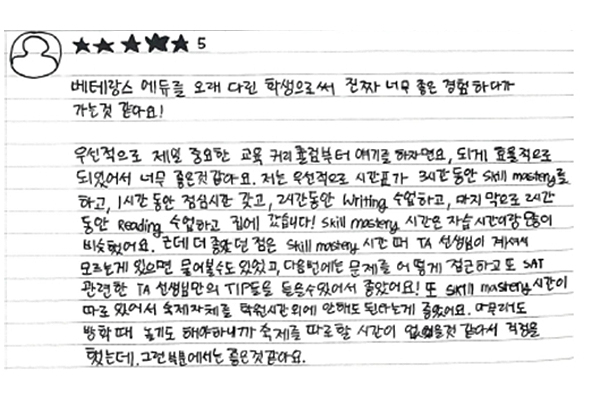 ★★★★★ 5
베테랑스 에듀를 오래 다닌 학생으로써 진짜 너무 좋은 경험하다가
가는것 같아요!
우선적으로 제일 중요한 교육 커리큘럼부터 얘기를 하자면요, 되게 효율적으로
되있어서 너무 좋은것같아요. 저는 우선적으로 시간표가 3시간동안 Skill mastery를
하고, 1시간동안 점심시간 갖고, 2시간동안 Writing 수업하고, 마지막으로 2시간
동안 Reading 수업하고 집에 갔습니다! Skill mastery 시간은 자습시간이랑
비슷했어요. 근데 더 좋았던 점은 Skill mastery 시간 때 TA 선생님이 계셔서
모르는게 있으면 물어볼수도 있었고, 다음번에는 문제를 어떻게 접근하고 또 SAT
관련한 TA 선생님만의 TIP들을 들을수있어서 좋았어요! 또 Skill mastery 시간이
따로 있어서 숙제자체를 학원시간외에 안해도 된다는게 좋았어요. 아무래도
방학때 놀기도 해야하니까 숙제를 따로할 시간이 없었을것 같아서 걱정을
했는데, 그런부분에서는 좋은것같아요.